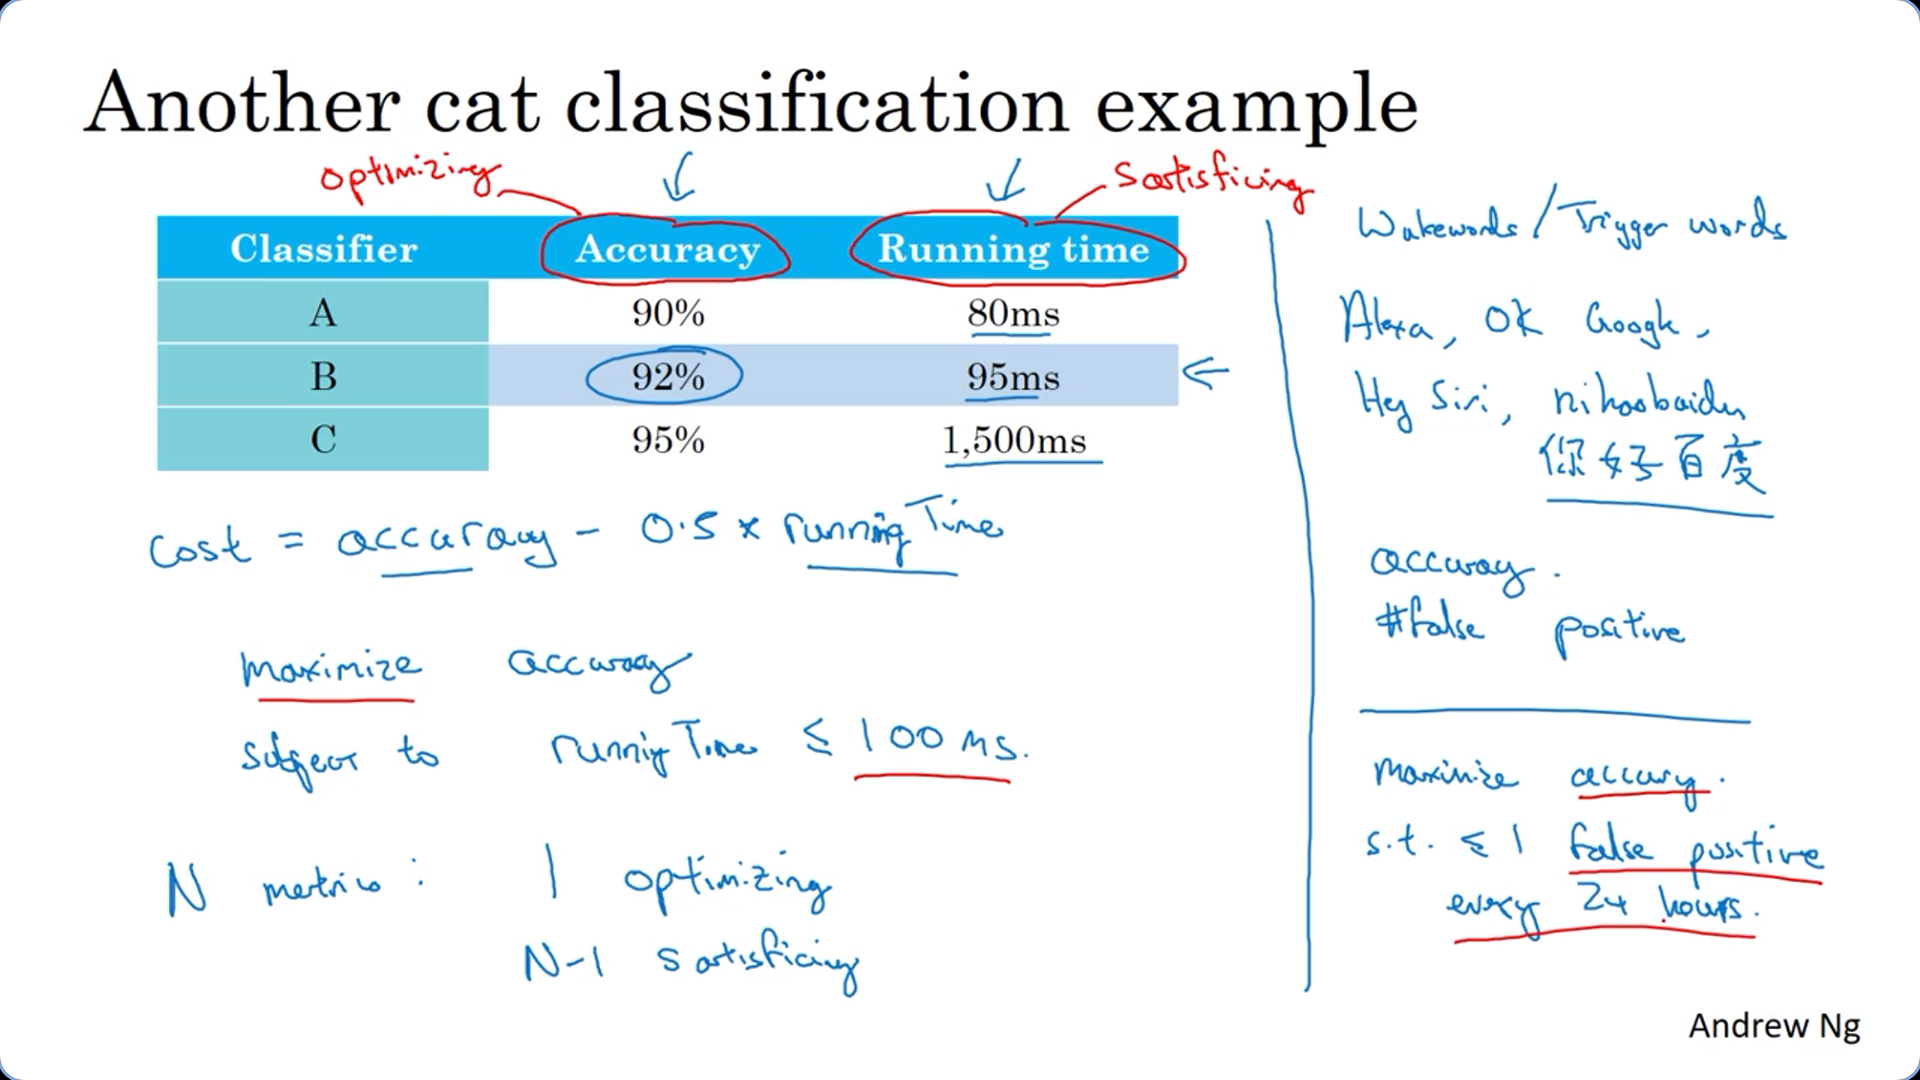 Another cat classification example
optimizing
satisficing
Classifier Accuracy Running time
A 90% 80ms
B 92% 95ms
C 95% 1,500ms
cost = accuracy - 0.5 * running Time
maximize accuracy
subject to running Time ≤ 100 ms.
N metrics: 1 optimizing
N-1 satisficing
Wakewords / Trigger words
Alexa, OK Google,
Hey Siri, nihaobaidu
你好百度
accuracy.
#false positive
Maximize accuracy.
s.t. ≤ 1 false positive
every 24 hours.
Andrew Ng